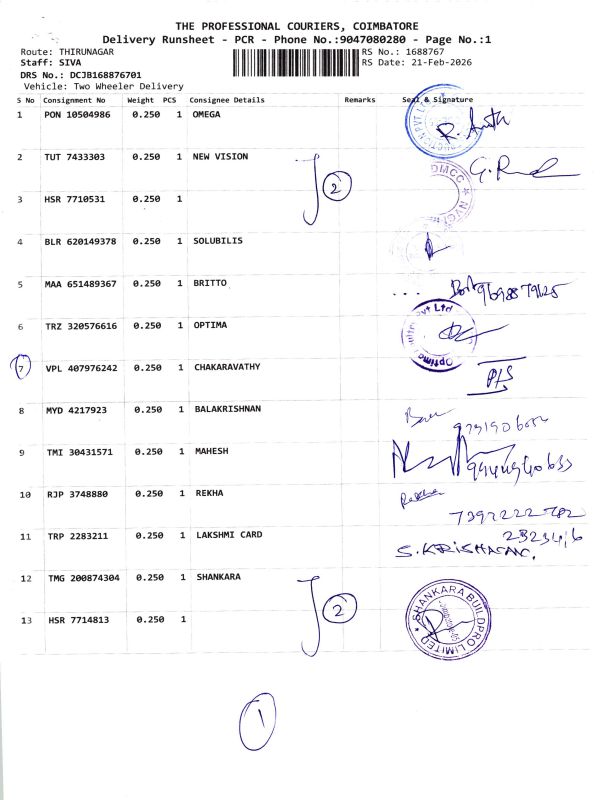 THE PROFESSIONAL COURIERS, COIMBATORE
Delivery Runsheet - PCR - Phone No.:9047080280 - Page No.:1
Route: THIRUNAGAR
RS No.: 1688767
Staff: SIVA
RS Date: 21-Feb-2026
DRS No.: DCJB168876701
Vehicle: Two Wheeler Delivery
S No Consignment No Weight PCS Consignee Details Remarks Seal & Signature
1 PON 10504986 0.250 1 OMEGA
2 TUT 7433303 0.250 1 NEW VISION
2
DMCC
3 HSR 7710531 0.250 1
4 BLR 620149378 0.250 1 SOLUBILIS
5 MAA 651489367 0.250 1 BRITTO
6 TRZ 320576616 0.250 1 OPTIMA
7 VPL 407976242 0.250 1 CHAKARAVATHY
8 MYD 4217923 0.250 1 BALAKRISHNAN
9 TMI 30431571 0.250 1 MAHESH
10 RJP 3748880 0.250 1 REKHA
Rekha
11 TRP 2283211 0.250 1 LAKSHMI CARD
12 TMG 200874304 0.250 1 SHANKARA
2
13 HSR 7714813 0.250 1
SHANKARA BUILDPRO LIMITED
1